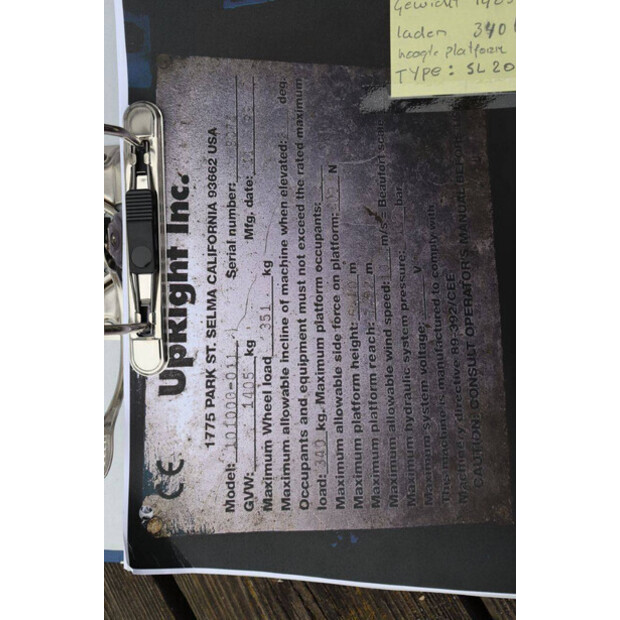 Gewicht 1405
laden 340
hoogte platform
TYPE: SL20
CE UpRight Inc.
1775 PARK ST. SELMA CALIFORNIA 93662 USA
Model: 101000-011 Serial number:
GVW: 1405 kg Mfg. date:
Maximum Wheel load 351 kg
Maximum allowable incline of machine when elevated: deg.
Occupants and equipment must not exceed the rated maximum
load: 340 kg. Maximum platform occupants:
Maximum allowable side force on platform: N
Maximum platform height: m
Maximum platform reach: m
Maximum allowable wind speed: m/s = Beaufort scale
Maximum hydraulic system pressure: bar
Maximum system voltage: V
The machine is manufactured to comply with
Machinery directive 89-392/CEE
CAUTION: CONSULT OPERATOR'S MANUAL BEFORE